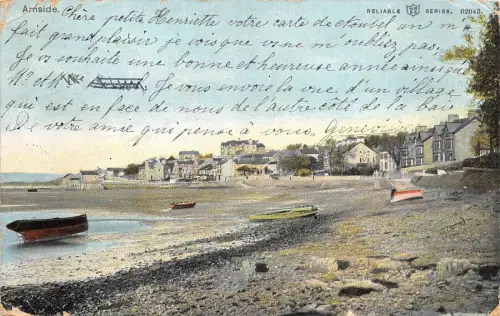 Arnside. RELIABLE WR&S SERIES. 02043
Chère petite Henriette votre carte de Noël m'a
fait grand plaisir je vois que vous ne m'oubliez pas,
Je vous souhaite une bonne et heureuse année ainsi que
Mr et M Je vous envois la vue d'un village
qui est en face de nous de l'autre côté de la Baie
De votre amie qui pense à vous, Geneviève